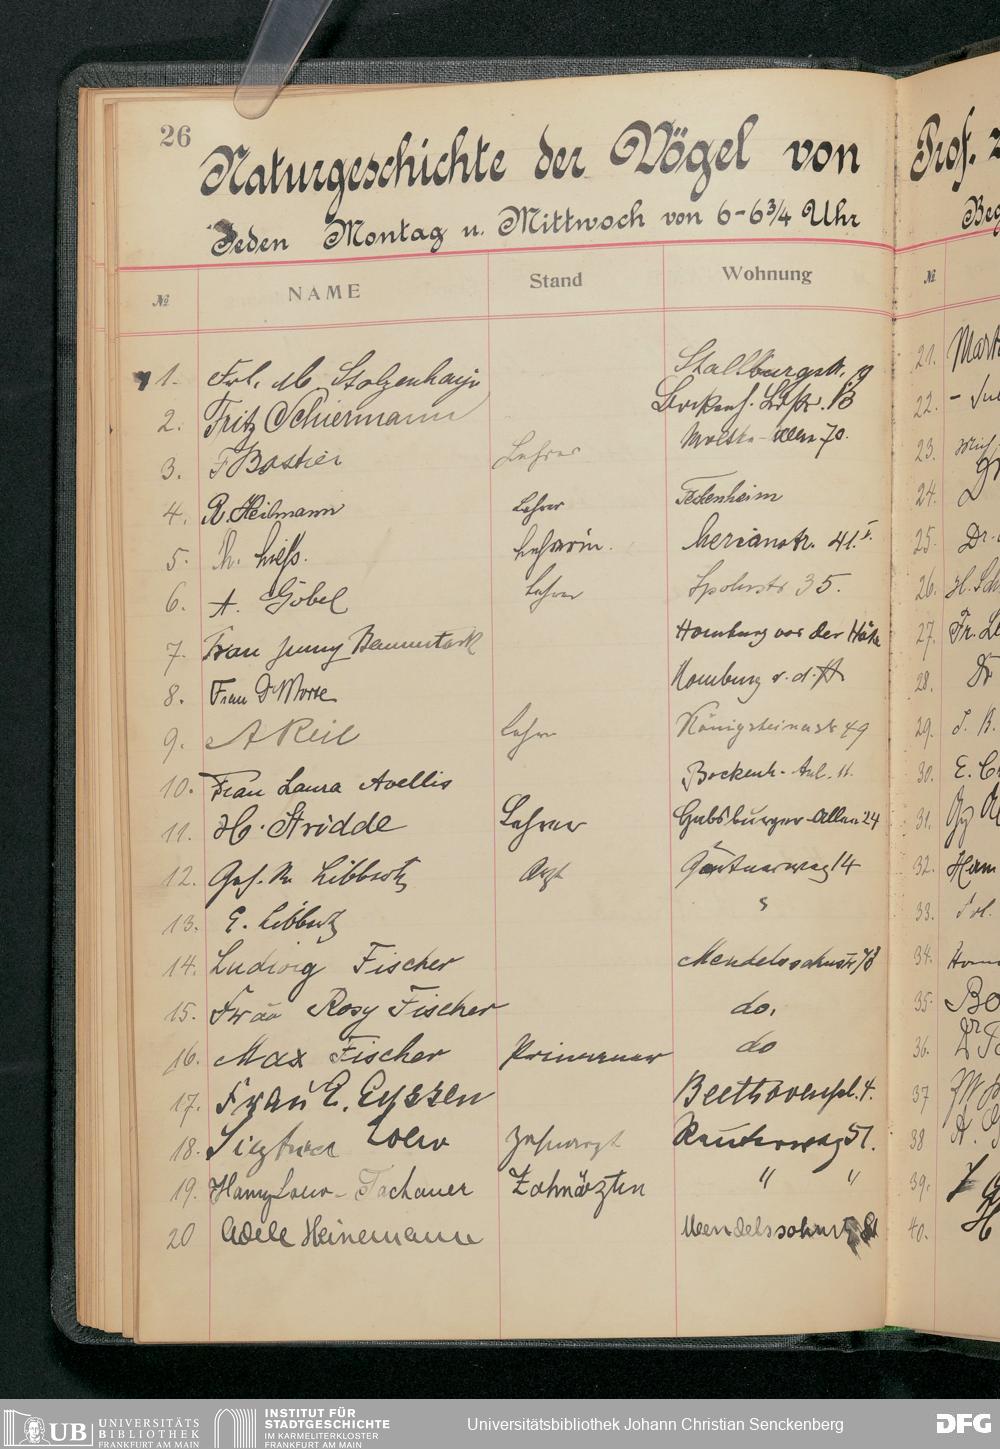 26
Naturgeschichte der Vögel von
Jeden Montag u. Mittwoch von 6-6¾ Uhr
№ NAME Stand Wohnung
1. Frl. M. Stolzenhayn Stallburgstr. 19
2. Fritz Schiermann Bockenh. Ldstr.
3. F Bastier Lehrer Moltke-Allee 70.
4. R. Heilmann Lehrer Fechenheim
5. Lehrerin. Merianstr. 41 I.
6. A. Göbel Lehrer Spohrstr 35.
7. Frau Jenny Baumstark Homburg vor der Höhe
8. Frau Dr Morse Homburg v. d. H
9. A Keil Lehrer Königsteinerstr 49
10. Frau Laura Avellis Bockenh. Anl. 11.
11. H. Stridde Lehrer Habsburger-Allee 24
12. Geh. R. Libbertz Arzt Gärtnerweg 14
13. E. Libbertz
14. Ludwig Fischer Mendelssohnstr 78
15. Frau Rosy Fischer do.
16. Max Fischer Primaner do
17. Frau E. Eyssen Beethovenpl. 4.
18. Loew Zahnarzt Reuterweg 51.
19. Hanny Loew-Tachauer Zahnärztin " "
20 Adele Heinemann Mendelssohnstr
Prof.
Beg
№
21. Mart
22.
23.
24.
25. Dr.
26. H. Sch
27. Fr. Le
28. Dr
29. J. B.
30. E. C
31.
32. Herm
33. Frl.
34.
35. Bo
36. Dr
37
38 A.
39.
40. H
UB UNIVERSITÄTS
BIBLIOTHEK
FRANKFURT AM MAIN
INSTITUT FÜR
STADTGESCHICHTE
IM KARMELITERKLOSTER
FRANKFURT AM MAIN
Universitätsbibliothek Johann Christian Senckenberg
DFG